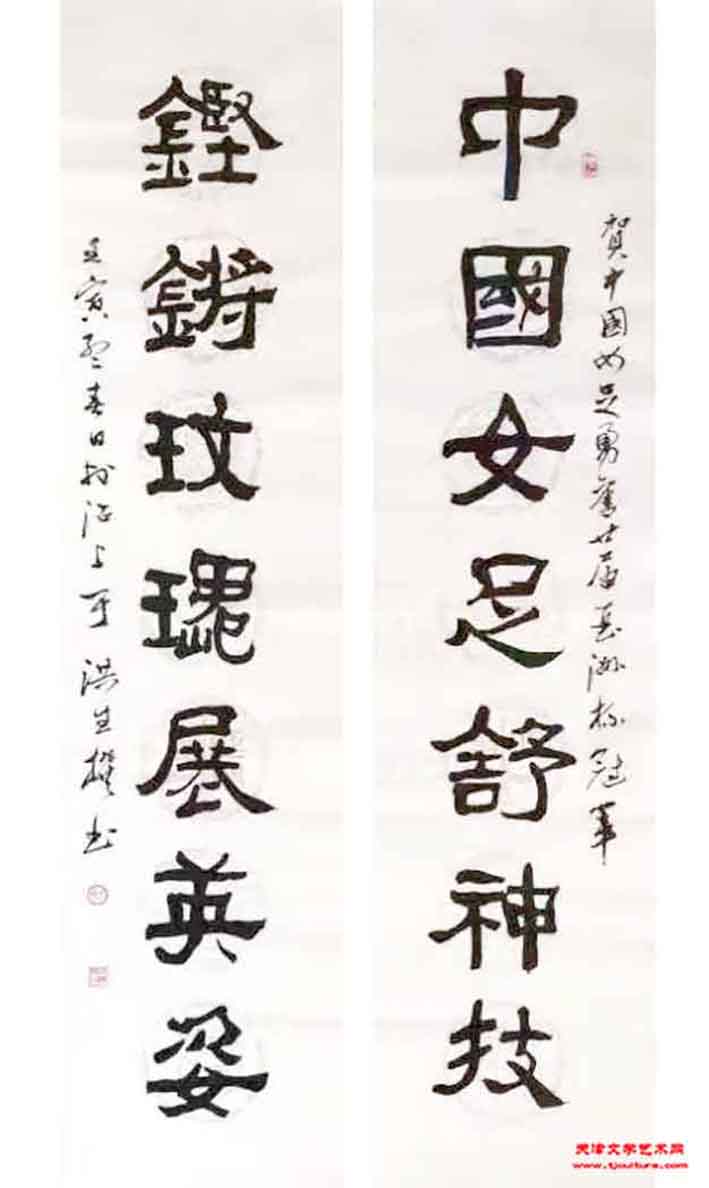 賀中国女足勇奪廿届亞洲杯冠軍
中國女足舒神技
鏗鏘玫瑰展英姿
壬寅孟春日於沽上 洪生撰书
天津文学艺术网
www.tjculture.com